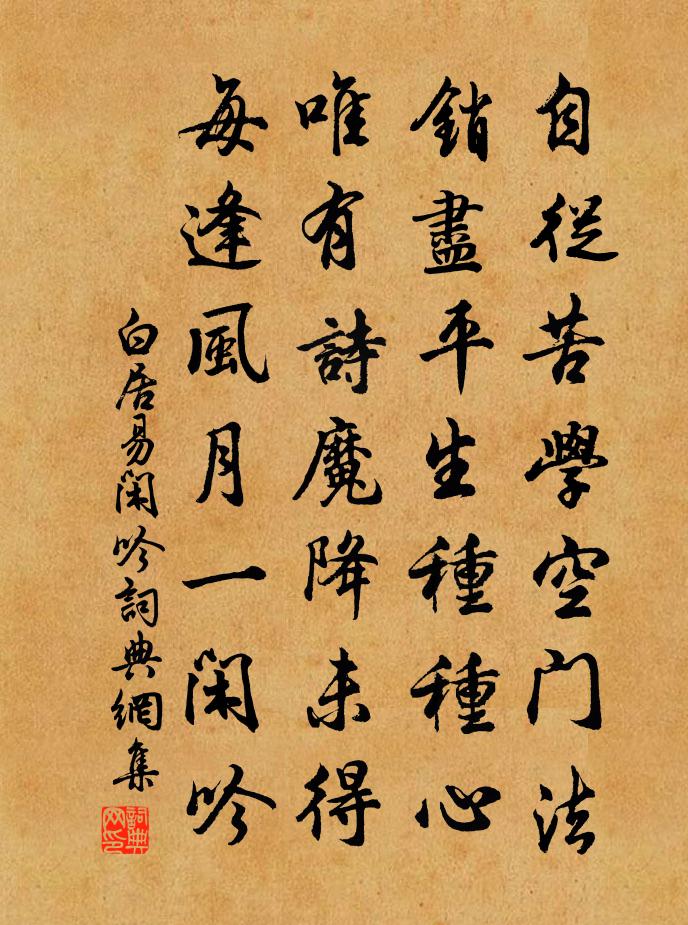 自從苦學空門法
銷盡平生種種心
唯有詩魔降未得
每逢風月一閑吟
白居易閑吟詞典網集
詞典网印